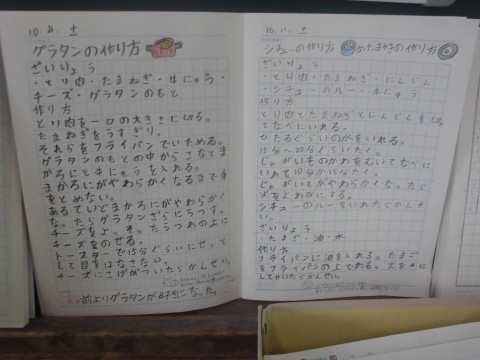 10. 4. 土
グラタンの作り方
ざいりょう
・とり肉・たまねぎ・牛にゅう・
チーズ・グラタンのもと
作り方
とり肉を一口の大きさに切る。
たまねぎをうすぎり。
それらをフライパンでいためる。
グラタンのもとの中からこなとま
かろにと牛にゅうを入れる。
まかろにがやわらかくなるまで手
をとめない。
あるていどまかろにがやわらかく
なったらグラタンざらにうつす。
チーズをのせる。
トースターで15分ぐらいにせっと
して目をはなさない。
チーズにこげがついたらかんせい。
前よりグラタンが好きになった。
10. 11. 土
シチューの作り方
のたまやきの作り方
ざいりょう
・とり肉・たまねぎ・にんじん
・シチューのルー・牛にゅう
作り方
とり肉とたまねぎとにんじんを切っ
てなべにいれる。
ひたるぐらいの水をいれる。
15分〜20分ぐらいたく。
じゃがいものかわをむいてなべに
いれて10分か15分たく。
じゃがいもがやわらかくなったら
火をよわびにする。
シチューのルーをいれたらかんせ
い。
ざいりょう
・たまご・油・水
作り方
フライパンに油を入れる。たまご
をフライパンの上でわる。